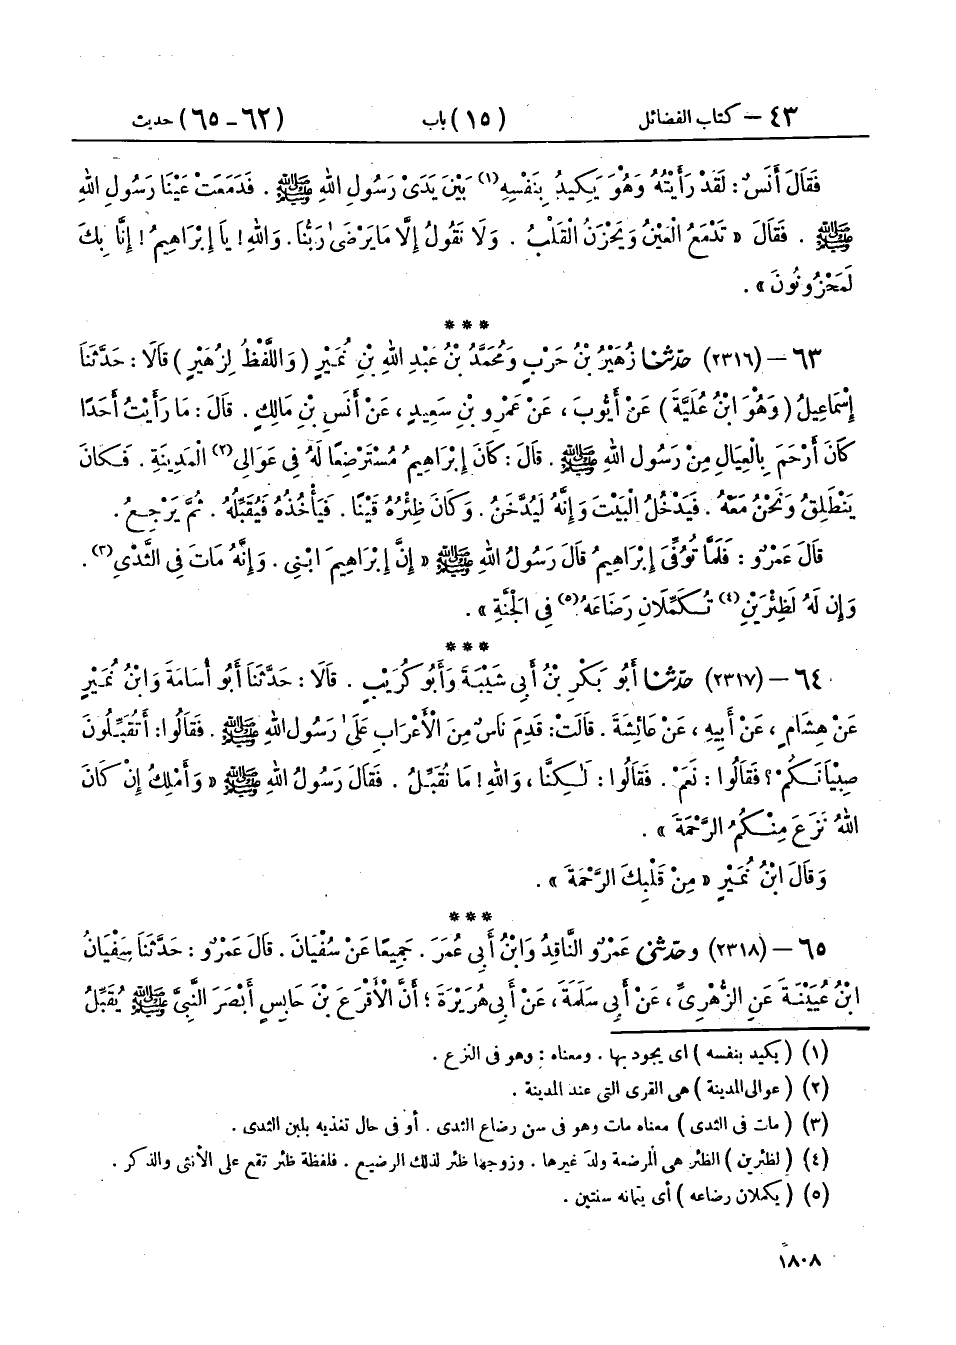 ٤٣ – كتاب الفضائل (١٥) باب (٦٢ – ٦٥) حديث
فَقَالَ أَنَسٌ : لَقَدْ رَأَيْتُهُ وَهُوَ يَكِيدُ بِنَفْسِهِ(١) بَيْنَ يَدَىْ رَسُولِ اللهِ ﷺ . فَدَمَعَتْ عَيْنَا رَسُولِ اللهِ
ﷺ . فَقَالَ « تَدْمَعُ الْعَيْنُ وَيَحْزَنُ الْقَلْبُ . وَلَا نَقُولُ إِلَّا مَا يَرْضَىٰ رَبُّنَا . وَاللهِ ! يَا إِبْرَاهِيمُ ! إِنَّا بِكَ
لَمَحْزُونُونَ » .
***
٦٣ – (٢٣١٦) حدّثنا زُهَيْرُ بْنُ حَرْبٍ وَمُحَمَّدُ بْنُ عَبْدِ اللهِ بْنِ نُمَيْرٍ ( وَاللَّفْظُ لِزُهَيْرٍ ) قَالَا : حَدَّثَنَا
إِسْمَاعِيلُ ( وَهُوَ ابْنُ عُلَيَّةَ ) عَنْ أَيُّوبَ ، عَنْ عَمْرِو بْنِ سَعِيدٍ ، عَنْ أَنَسِ بْنِ مَالِكٍ . قَالَ : مَا رَأَيْتُ أَحَدًا
كَانَ أَرْحَمَ بِالْعِيَالِ مِنْ رَسُولِ اللهِ ﷺ . قَالَ : كَانَ إِبْرَاهِيمُ مُسْتَرْضِعًا لَهُ فِى عَوَالِى(٢) الْمَدِينَةِ . فَكَانَ
يَنْطَلِقُ وَنَحْنُ مَعَهُ . فَيَدْخُلُ الْبَيْتَ وَإِنَّهُ لَيُدَّخَنُ . وَكَانَ ظِئْرُهُ قَيْنًا . فَيَأْخُذُهُ فَيُقَبِّلُهُ . ثُمَّ يَرْجِعُ .
قَالَ عَمْرٌو : فَلَمَّا تُوُفِّىَ إِبْرَاهِيمُ قَالَ رَسُولُ اللهِ ﷺ « إِنَّ إِبْرَاهِيمَ ابْنِى . وَإِنَّهُ مَاتَ فِى الثَّدْىِ(٣) .
وَإِن لَهُ لَظِئْرَيْنِ(٤) تُكَمِّلَانِ رَضَاعَهُ(٥) فِى الْجَنَّةِ » .
***
٦٤ – (٢٣١٧) حدّثنا أَبُو بَكْرِ بْنُ أَبِى شَيْبَةَ وَأَبُو كُرَيْبٍ . قَالَا : حَدَّثَنَا أَبُو أُسَامَةَ وَابْنُ نُمَيْرٍ
عَنْ هِشَامٍ ، عَنْ أَبِيهِ ، عَنْ عَائِشَةَ . قَالَتْ : قَدِمَ نَاسٌ مِنَ الْأَعْرَابِ عَلَىٰ رَسُولِ اللهِ ﷺ . فَقَالُوا : أَتُقَبِّلُونَ
صِبْيَانَكُمْ ؟ فَقَالُوا : نَعَمْ . فَقَالُوا : لَٰكِنَّا ، وَاللهِ ! مَا نُقَبِّلُ . فَقَالَ رَسُولُ اللهِ ﷺ « وَأَمْلِكُ إِنْ كَانَ
اللهُ نَزَعَ مِنْكُمُ الرَّحْمَةَ » .
وَقَالَ ابْنُ نُمَيْرٍ « مِنْ قَلْبِكَ الرَّحْمَةَ » .
***
٦٥ – (٢٣١٨) وحدّثنى عَمْرٌو النَّاقِدُ وَابْنُ أَبِى عُمَرَ . جَمِيعًا عَنْ سُفْيَانَ . قَالَ عَمْرٌو : حَدَّثَنَا سُفْيَانُ
ابْنُ عُيَيْنَةَ عَنِ الزُّهْرِىِّ ، عَنْ أَبِى سَلَمَةَ ، عَنْ أَبِى هُرَيْرَةَ ؛ أَنَّ الْأَقْرَعَ بْنَ حَابِسٍ أَبْصَرَ النَّبِىَّ ﷺ يُقَبِّلُ
(١) ( يكيد بنفسه ) أى يجود بها . ومعناه : وهو فى النزع .
(٢) ( عوالى المدينة ) هى القرى التى عند المدينة .
(٣) ( مات فى الثدى ) معناه مات وهو فى سن رضاع الثدى . أو فى حال تغذيه بلبن الثدى .
(٤) ( لظئرين ) الظئر هى المرضعة ولدَ غيرها . وزوجها ظئر لذلك الرضيع . فلفظة ظئر تقع على الأنثى والذكر .
(٥) ( يكملان رضاعه ) أى يتمانه سنتين .
١٨٠٨